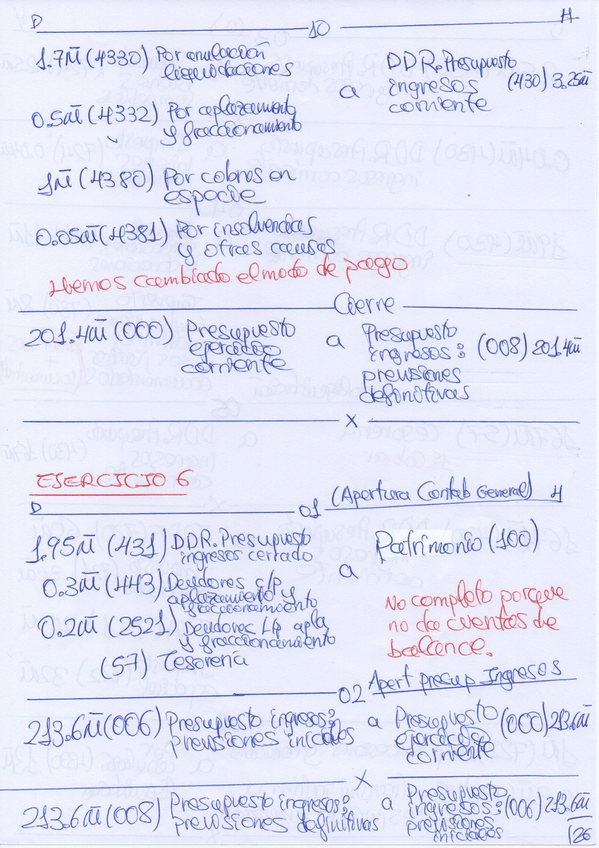 D 10 H
1.7M̄ (4330) Por anulación DDR. Presupuesto
liquidaciones a ingresos (430) 3.25M̄
corriente
0.5M̄ (4332) Por aplazamiento
y fraccionamiento
1M̄ (4380) Por cobros en
especie
0.05M̄ (4381) Por insolvencias
y otras causas
Hemos cambiado el modo de pago
Cierre
201.4M̄ (000) Presupuesto a Presupuesto
ejercicio ingresos: (008) 201.4M̄
corriente previsiones
definitivas
X
EJERCICIO 6
D 01 (Apertura Contab General) H
1.95M̄ (431) DDR. Presupuesto Patrimonio (100)
ingresos cerrado a
0.3M̄ (443) Deudores c/p
aplazamiento y
fraccionamiento
0.2M̄ (2521) Deudores L/p apla
y fraccionamiento
(57) Tesorería
No completo porque
no da cuentas de
balance.
02 Apert presup Ingresos
213.6M̄ (006) Presupuesto ingresos: a Presupuesto (000) 213.6M̄
previsiones iniciales ejercicio
corriente
X
213.6M̄ (008) Presupuesto ingresos: a Presupuesto
previsiones definitivas ingresos: (006) 213.6M̄
previsiones
iniciales (26